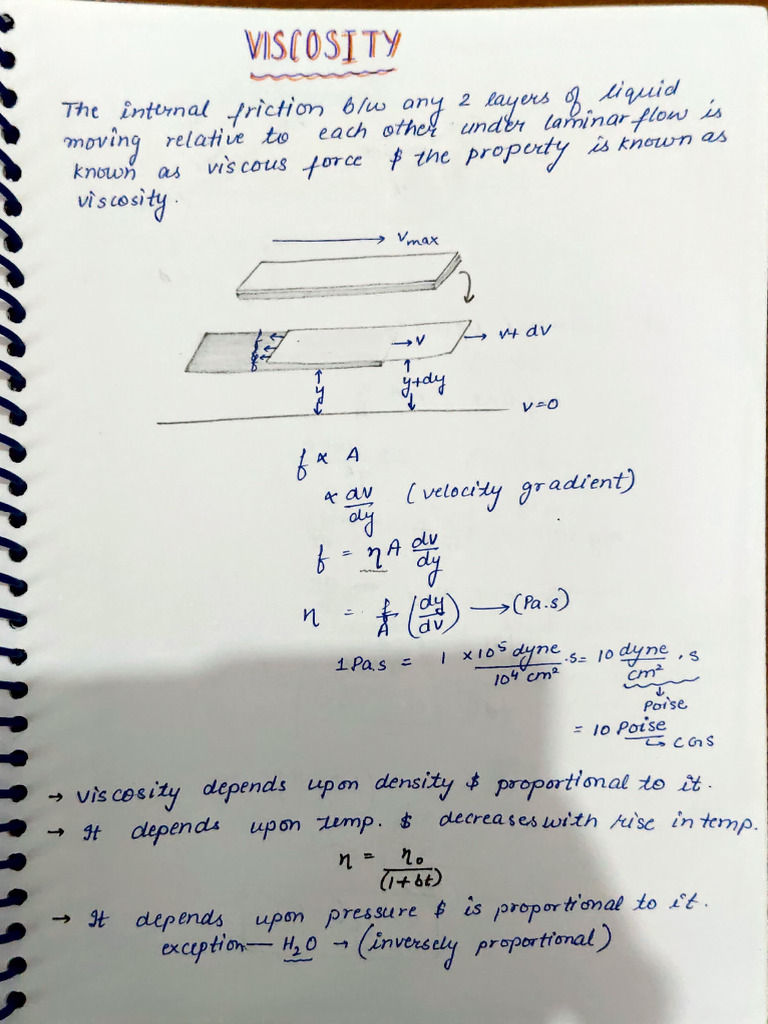 VISCOSITY
The internal friction b/w any 2 layers of liquid
moving relative to each other under laminar flow is
known as viscous force & the property is known as
viscosity.
→ Vmax
f ← → v → v+dv
y y+dy
v=0
f ∝ A
∝ dv/dy (velocity gradient)
f = η A dv/dy
η = f/A (dy/dv) → (Pa.s)
1 Pa.s = 1 × 10⁵ dyne / 10⁴ cm² .s = 10 dyne/cm² . s
↓
Poise
= 10 Poise
↳ CGS
→ viscosity depends upon density & proportional to it.
→ It depends upon temp. & decreases with rise in temp.
η = η₀/(1+bt)
→ It depends upon pressure & is proportional to it.
exception— H₂O → (inversely proportional)